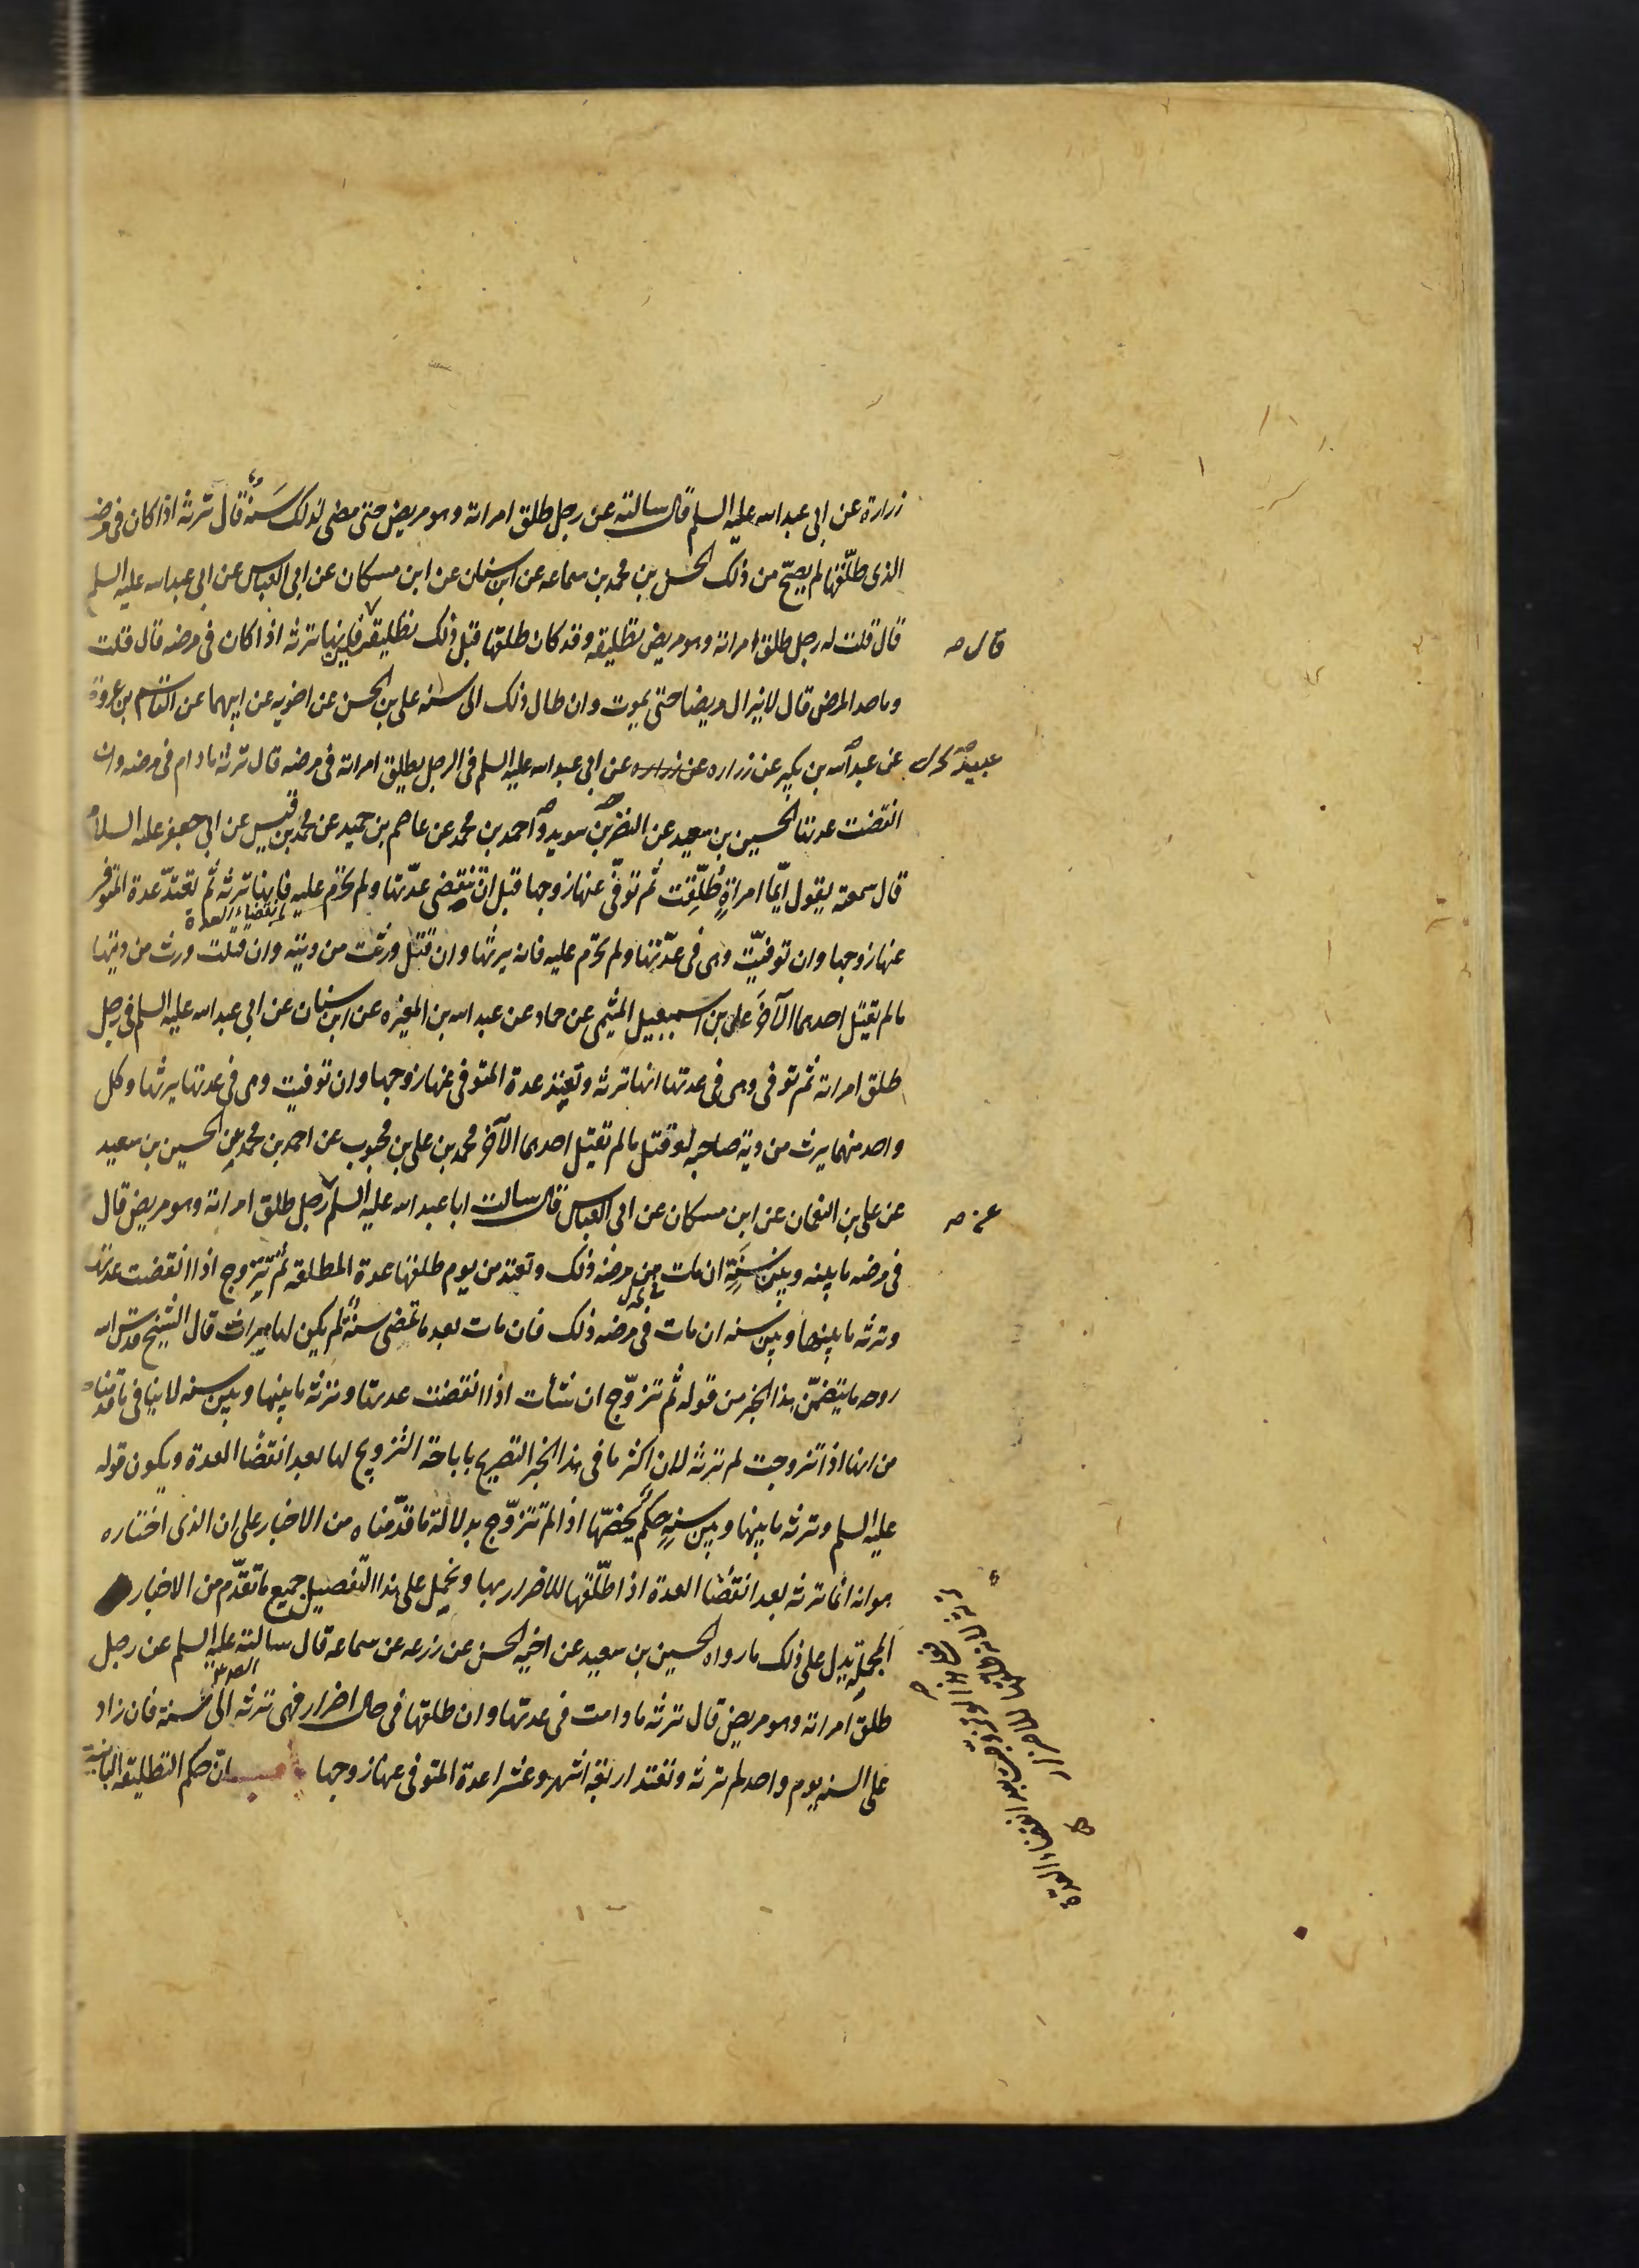 زرارة عن ابى عبد الله عليه السلم قال سالته عن رجل طلق امراته وهو مريض حتى مضى لذلك سنة قال ترثه اذا كان فى مرضه
الذى طلّقها لم يصحّ من ذلك الحسن بن محمد بن سماعه عن ابن سنان عن ابن مسكان عن ابى العباس عن ابى عبد الله عليه السلم
قال قلت له رجل طلق امراته وهو مريض تطليقه وقد كان طلقها قبل ذلك تطليقتين قال فانها ترثه اذا كان فى مرضه قال قلت
وما حد المرض قال لا يزال مريضا حتى يموت وان طال ذلك الى سنه على بن الحسن عن اخويه عن ابيهما عن القاسم بن عروة
عن عبد الله بن بكير عن زراره عن زراره عن ابى عبد الله عليه السلم فى الرجل يطلق امراته فى مرضه قال ترثه مادام فى مرضه وان
انقضت عدتها الحسين بن سعيد عن النضر بن سويد و احمد بن محمد عن عاصم بن حميد عن محمد بن قيس عن ابى جعفر عليه السلام
قال سمعته يقول ايّما امراةٍ طُلّقت ثم توفّى عنها زوجها قبل ان تنقضى عدّتها ولم تحرم عليه فانها ترثه ثم تعتدّ عدة المتوفى
عنها زوجها وان توفيّت وهى فى عدّتها ولم تحرم عليه فانه يرثها وان قُتل ورثت من ديته وان قتلت ورث من ديتها
ما لم يقتل احدهما الآخرَ على بن اسمعيل الميثمى عن حماد عن عبد الله بن المغيره عن ابن سنان عن ابى عبد الله عليه السلم فى رجل
طلق امراته ثم توفى وهى فى عدتها انها ترثه وتعتد عدة المتوفى عنها زوجها وان توفيت وهى فى عدتها يرثها وكل
واحد منهما يرث من دية صاحبه لو قتل ما لم يقتل احدهما الآخر محمد بن على بن محبوب عن احمد بن محمد عن الحسين بن سعيد
عن على بن النعمان عن ابن مسكان عن ابى العباس قال سالت ابا عبد الله عليه السلم رجل طلق امراته وهو مريض قال
فى مرضه ما بينه وبين سَنَةٍ ان مات من مرضه ذلك وتعتد من يوم طلقها عدة المطلقه ثم تتزوج اذا انقضت عدتها
وترثه ما بينها وبين سنه ان مات فى مرضه ذلك فان مات بعد ما تمضى سنة لم يكن لها ميراث قال الشيخ قدس الله
روحه ما يتضمّن هذا الخبر من قوله ثم تزوّج ان شأت اذا انقضت عدتها وترثه ما بينها وبين سنه لا ينافى ما قدمناه
من انها اذا تزوجت لم ترثه لان اكثر ما فى هذا الخبر التصريح باباحة التزويج لها بعد انقضا العدة ويكون قوله
عليه السلم وترثه ما بينها وبين سنةٍ حكم يخصّها اذا لم تتزوّج بدلالة ما قدّمناه من الاخبار على ان الذى اختاره
هو انه انما ترثه بعد انقضا العدة اذا طلّقها للاضرار بها ويُحمل على هذا التفصيل جميع ما تقدّم من الاخبار
المجملة يدل على ذلك ما رواه الحسين بن سعيد عن اخيه الحسن عن زرعه عن سماعه قال سالته عليه السلم عن رجل
طلق امراته وهو مريض قال ترثه ما دامت فى عدتها وان طلقها فى حال اضرار فهى ترثه الى سنة فان زاد
على السنه يوم واحد لم ترثه وتعتد اربعة اشهر وعشرا عدة المتوفى عنها زوجها انّ حكم التطليقه البائنه
قال
عبيد
عنه
لانقضاء العدة